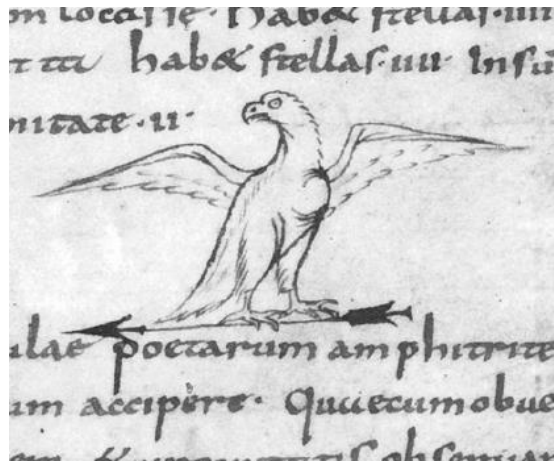 habet stellas·iiii
habet stellas·iiii· Insu
nitate·ii·
ulae poetarum amphitrite
um accipere· Qu
obseruar